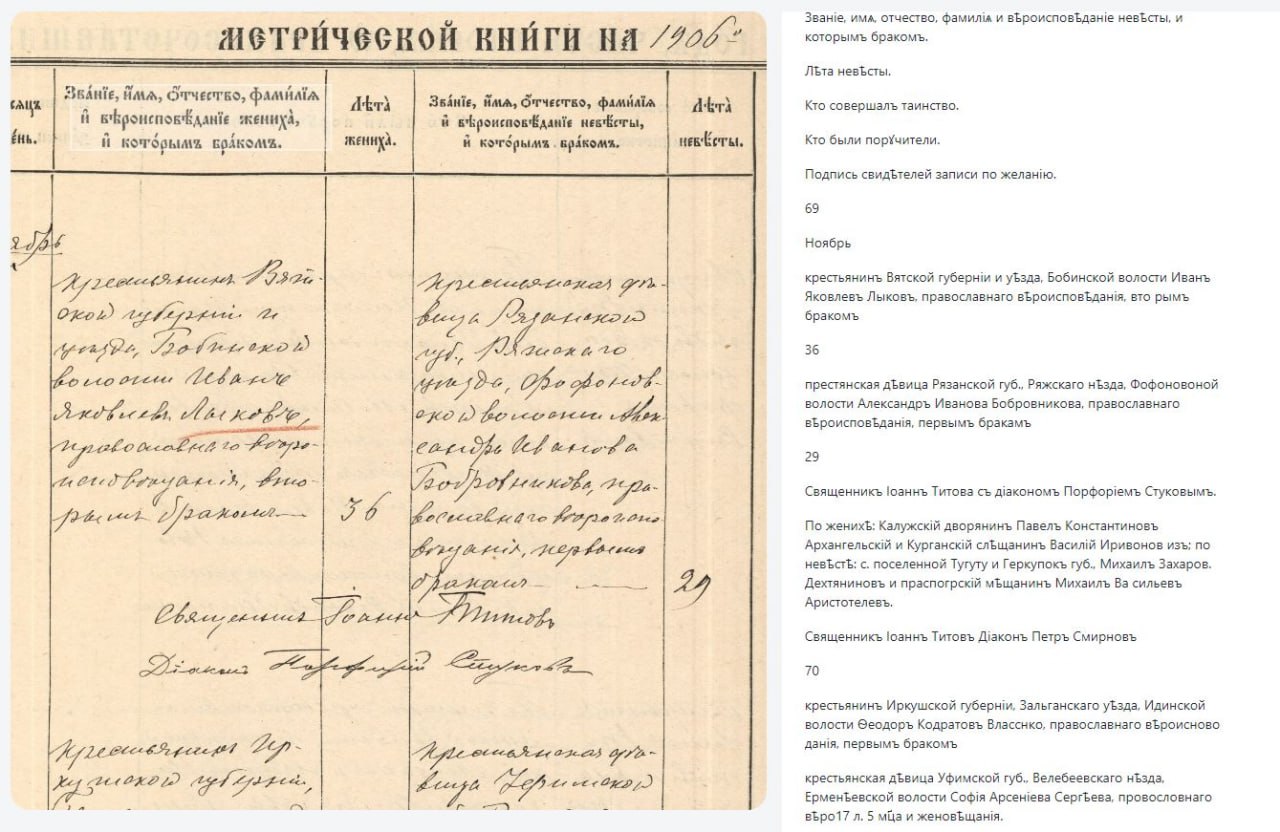 МЕТРИЧЕСКОЙ КНИГИ НА 1906 г.
сяцъ
ень.
Званіе, имя, отчество, фамилія
и вѣроисповѣданіе жениха,
и которымъ бракомъ.
Лѣта
жениха.
Званіе, имя, отчество, фамилія
и вѣроисповѣданіе невѣсты,
и которымъ бракомъ.
Лѣта
невѣсты.
ябрь
крестьянинъ Вят-
ской губерніи и
уѣзда, Бобинской
волости Иванъ
Яковлевъ Лыковъ,
православнаго вѣро-
исповѣданія, вто-
рымъ бракомъ
36
крестьянская дѣ-
вица Рязанской
губ., Ряжскаго
уѣзда, Фофонов-
ской волости Алек-
сандра Иванова
Бобровникова, пра-
вославнаго вѣроиспо
вѣданія, первымъ
бракомъ
29
Священникъ Іоаннъ Титовъ
Діаконъ Порфирій Стуковъ
крестьянинъ Ир-
кутской губерніи,
крестьянская дѣ-
вица Уфимской
Званіе, имѧ, отчество, фамиліѧ и вѣроисповѣданіе невѣсты, и
которымъ бракомъ.
Лѣта невѣсты.
Кто совершалъ таинство.
Кто были порꙋчители.
Подпись свидѣтелей записи по желанію.
69
Ноябрь
крестьянинъ Вятской губерніи и уѣзда, Бобинской волости Иванъ
Яковлевъ Лыковъ, православнаго вѣроисповѣданія, вто рымъ
бракомъ
36
престянская дѣвица Рязанской губ., Ряжскаго нѣзда, Фофоновоной
волости Александръ Иванова Бобровникова, православнаго
вѣроисповѣданія, первымъ бракамъ
29
Священникъ Іоаннъ Титова съ діаконом Порфоріемъ Стуковымъ.
По женихѣ: Калужскій дворянинъ Павелъ Константиновъ
Архангельскій и Курганскій слѣщанинъ Василій Иривонов изъ; по
невѣстѣ: с. поселенной Тугуту и Геркупокъ губ., Михаилъ Захаров.
Дехтяниновъ и праспогрскій мѣщанинъ Михаилъ Ва сильевъ
Аристотелевъ.
Священникъ Іоаннъ Титовъ Діаконъ Петръ Смирновъ
70
крестьянинъ Иркушской губерніи, Зальганскаго уѣзда, Идинской
волости Ѳеодоръ Кодратовъ Власснко, православнаго вѣроисново
данія, первымъ бракомъ
крестьянская дѣвица Уфимской губ., Велебеевскаго нѣзда,
Ерменѣевской волости Софія Арсеніева Сергѣева, провословнаго
вѣро17 л. 5 мца и женовѣщанія.